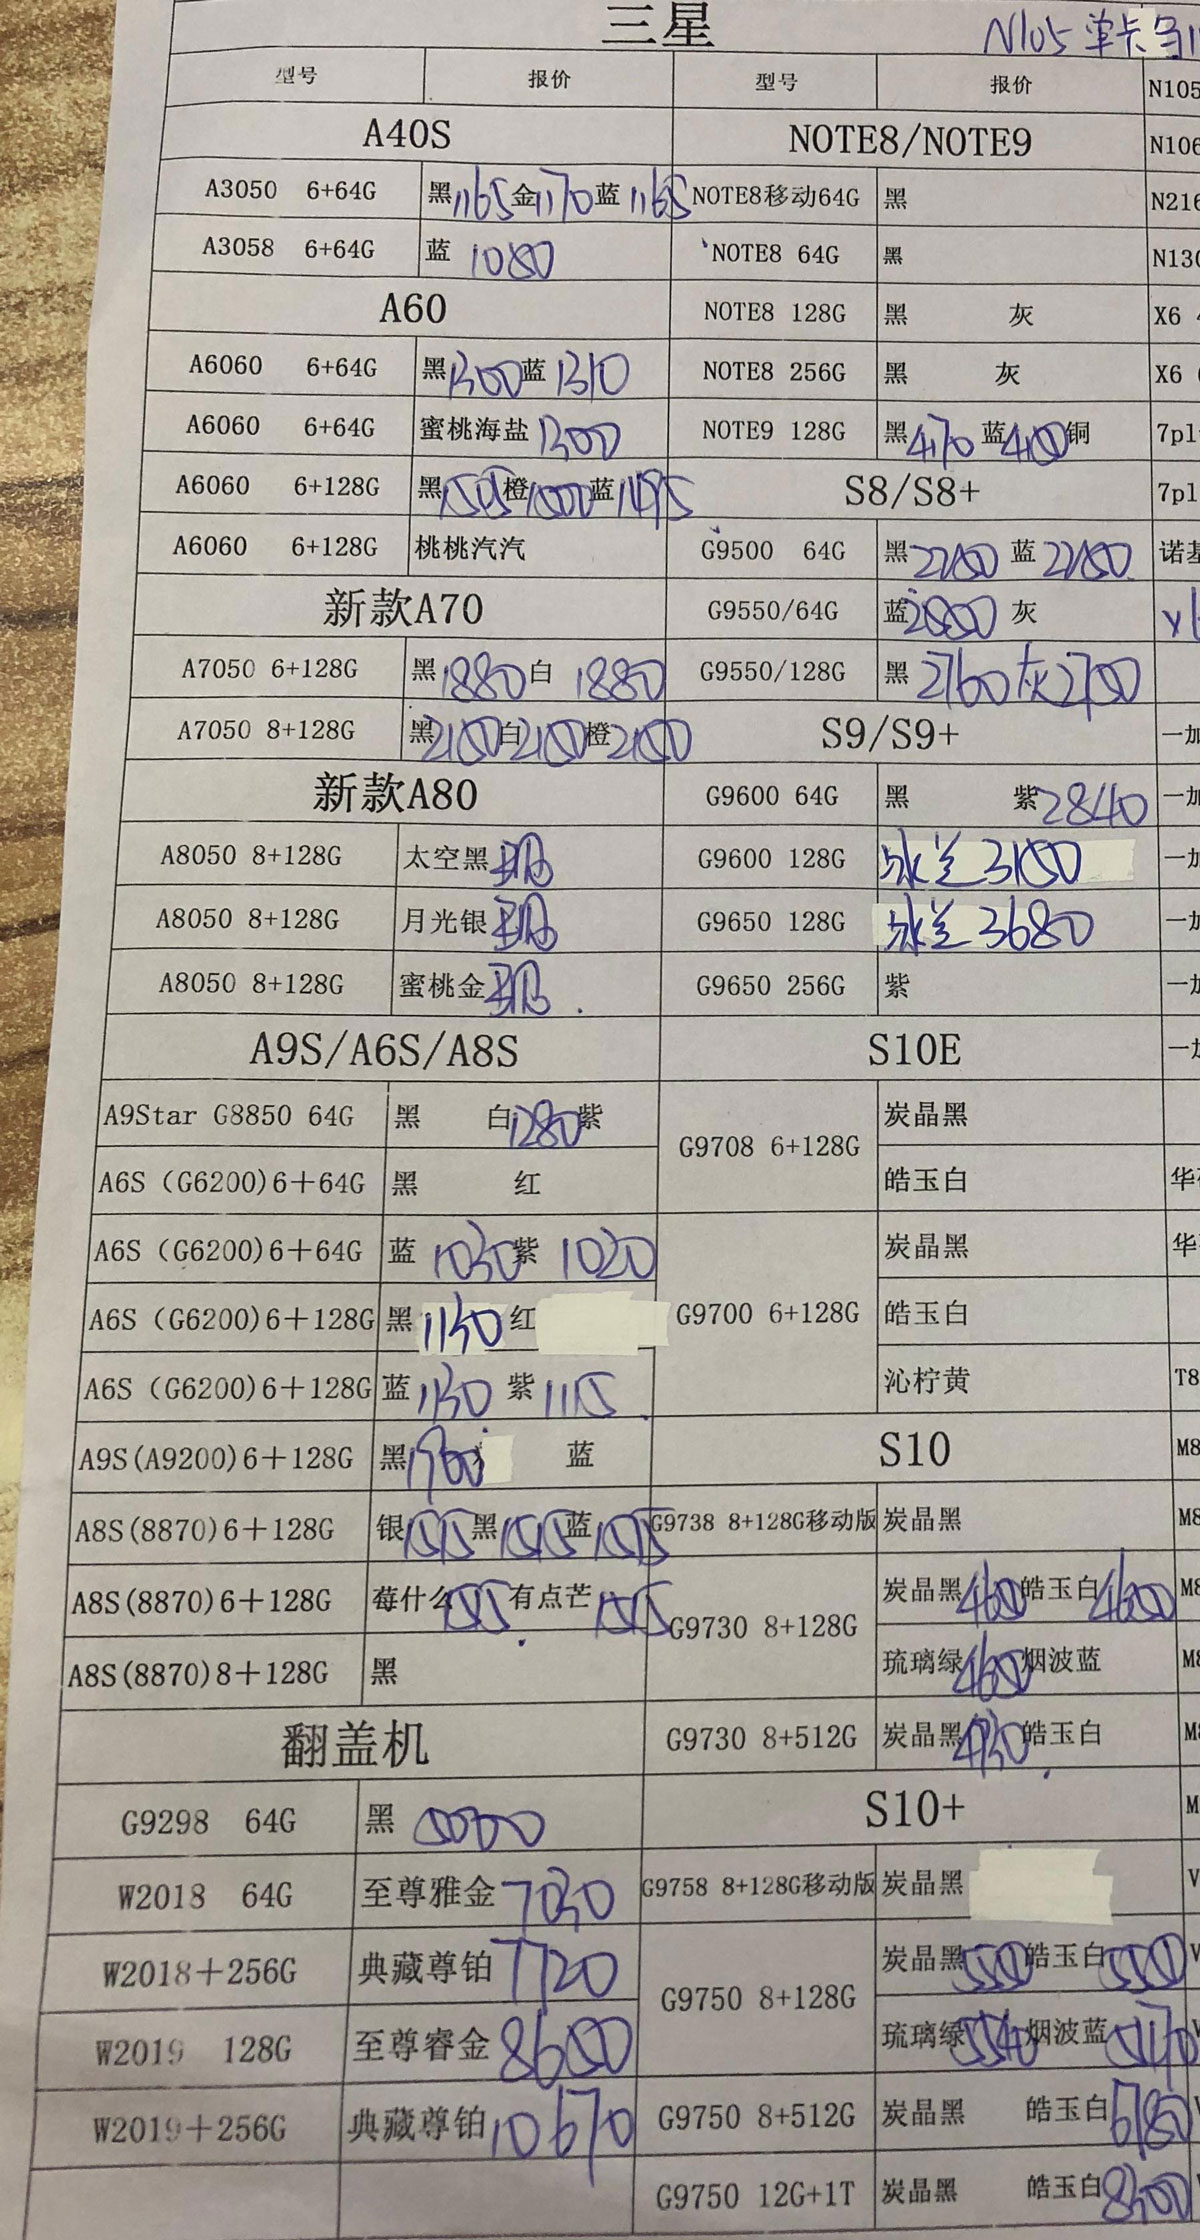 三星
N105 单卡
型号 报价 型号 报价 N105
A40S NOTE8/NOTE9 N106
A3050 6+64G 黑1165金1170蓝1165 NOTE8移动64G 黑 N216
A3058 6+64G 蓝 1080 NOTE8 64G 黑 N130
A60 NOTE8 128G 黑 灰 X6
A6060 6+64G 黑1300蓝1310 NOTE8 256G 黑 灰 X6
A6060 6+64G 蜜桃海盐1300 NOTE9 128G 黑4170 蓝 铜 7pl
A6060 6+128G 黑1505橙1500蓝1495 S8/S8+ 7pl
A6060 6+128G 桃桃汽汽 G9500 64G 黑2250 蓝2250 诺基
新款A70 G9550/64G 蓝 灰
A7050 6+128G 黑1880白 1880 G9550/128G 黑 2760灰2700
A7050 8+128G 黑2150白2150橙2150 S9/S9+ 一加
新款A80 G9600 64G 黑 紫2840 一加
A8050 8+128G 太空黑 G9600 128G 冰兰3150 一加
A8050 8+128G 月光银 G9650 128G 冰兰3680 一加
A8050 8+128G 蜜桃金 G9650 256G 紫 一加
A9S/A6S/A8S S10E 一加
A9Star G8850 64G 黑 白1280紫 G9708 6+128G 炭晶黑
A6S (G6200)6+64G 黑 红 皓玉白 华
A6S (G6200)6+64G 蓝 1030紫 1020 G9700 6+128G 炭晶黑 华
A6S (G6200)6+128G 黑1130红 皓玉白
A6S (G6200)6+128G 蓝1130 紫1115 沁柠黄 T8
A9S(A9200)6+128G 黑1900 蓝 S10 M8
A8S(8870)6+128G 银1515黑1515蓝1515 G9738 8+128G移动版 炭晶黑 M8
A8S(8870)6+128G 莓什么1515有点芒1515 G9730 8+128G 炭晶黑 皓玉白4600 M8
A8S(8870)8+128G 黑 琉璃绿 烟波蓝 M8
翻盖机 G9730 8+512G 炭晶黑 皓玉白 M8
G9298 64G 黑 S10+ M
W2018 64G 至尊雅金7030 G9758 8+128G移动版 炭晶黑 V
W2018+256G 典藏尊铂7720 G9750 8+128G 炭晶黑 皓玉白
W2019 128G 至尊睿金8650 琉璃绿5540烟波蓝
W2019+256G 典藏尊铂10670 G9750 8+512G 炭晶黑 皓玉白
G9750 12G+1T 炭晶黑 皓玉白